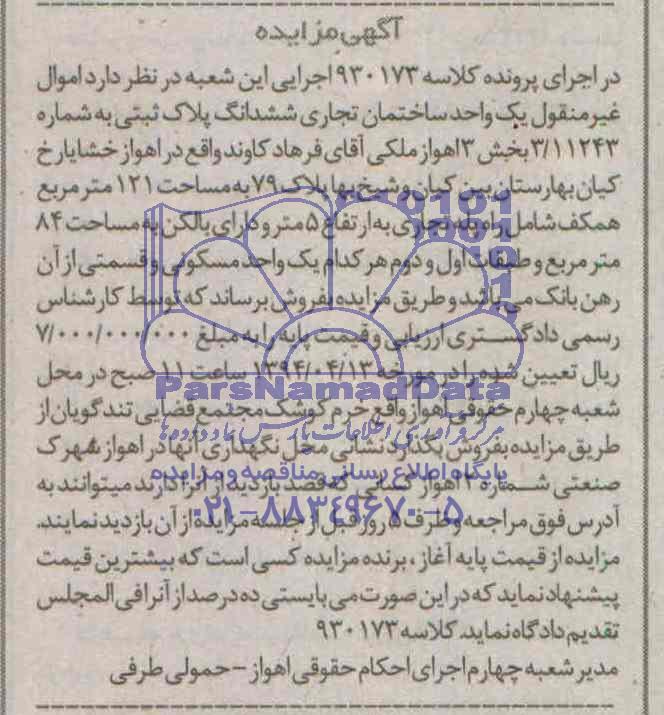 آگهی مزایده
در اجرای پرونده کلاسه ۹۳۰۱۷۳ اجرایی این شعبه در نظر دارد اموال
غیرمنقول یک واحد ساختمان تجاری ششدانگ پلاک ثبتی به شماره
۳/۱۱۲۴۳ بخش ۳ اهواز ملکی آقای فرهاد کاوند واقع در اهواز خشایار خ
کیان بهارستان بین کیان و شیخ بها پلاک ۷۹ به مساحت ۱۲۱ متر مربع
همکف شامل راه پله تجاری به ارتفاع ۵ متر و دارای بالکن به مساحت ۸۴
متر مربع و طبقات اول و دوم هر کدام یک واحد مسکونی و قسمتی از آن
رهن بانک می باشد و طریق مزایده بفروش برساند که توسط کارشناس
رسمی دادگستری ارزیابی و قیمت پایه را به مبلغ ۷/۰۰۰/۰۰۰/۰۰۰
ریال تعیین شده را در مورخه ۱۳۹۴/۰۴/۱۳ ساعت ۱۱ صبح در محل
ParsNamadData
شعبه چهارم حقوقی اهواز واقع خرم کوشک مجتمع قضایی تندگویان از
مرکز فرآوری اطلاعات پارس نماد داده ها
طریق مزایده بفروش بگذارد نشانی محل نگهداری آنها در اهواز شهرک
پایگاه اطلاع رسانی مناقصه و مزایده
صنعتی شماره ۲ اهواز کسانی که قصد بازدید از آنرا دارند میتوانند به
۰۲۱-۸۸۳۴۹۶۷۰-۵
آدرس فوق مراجعه و ظرف ۵ روز قبل از جلسه مزایده از آن بازدید نمایند.
مزایده از قیمت پایه آغاز ، برنده مزایده کسی است که بیشترین قیمت
پیشنهاد نماید که در این صورت می بایستی ده درصد از آنرا فی المجلس
تقدیم دادگاه نماید. کلاسه ۹۳۰۱۷۳
مدیر شعبه چهارم اجرای احکام حقوقی اهواز - حمولی طرفی